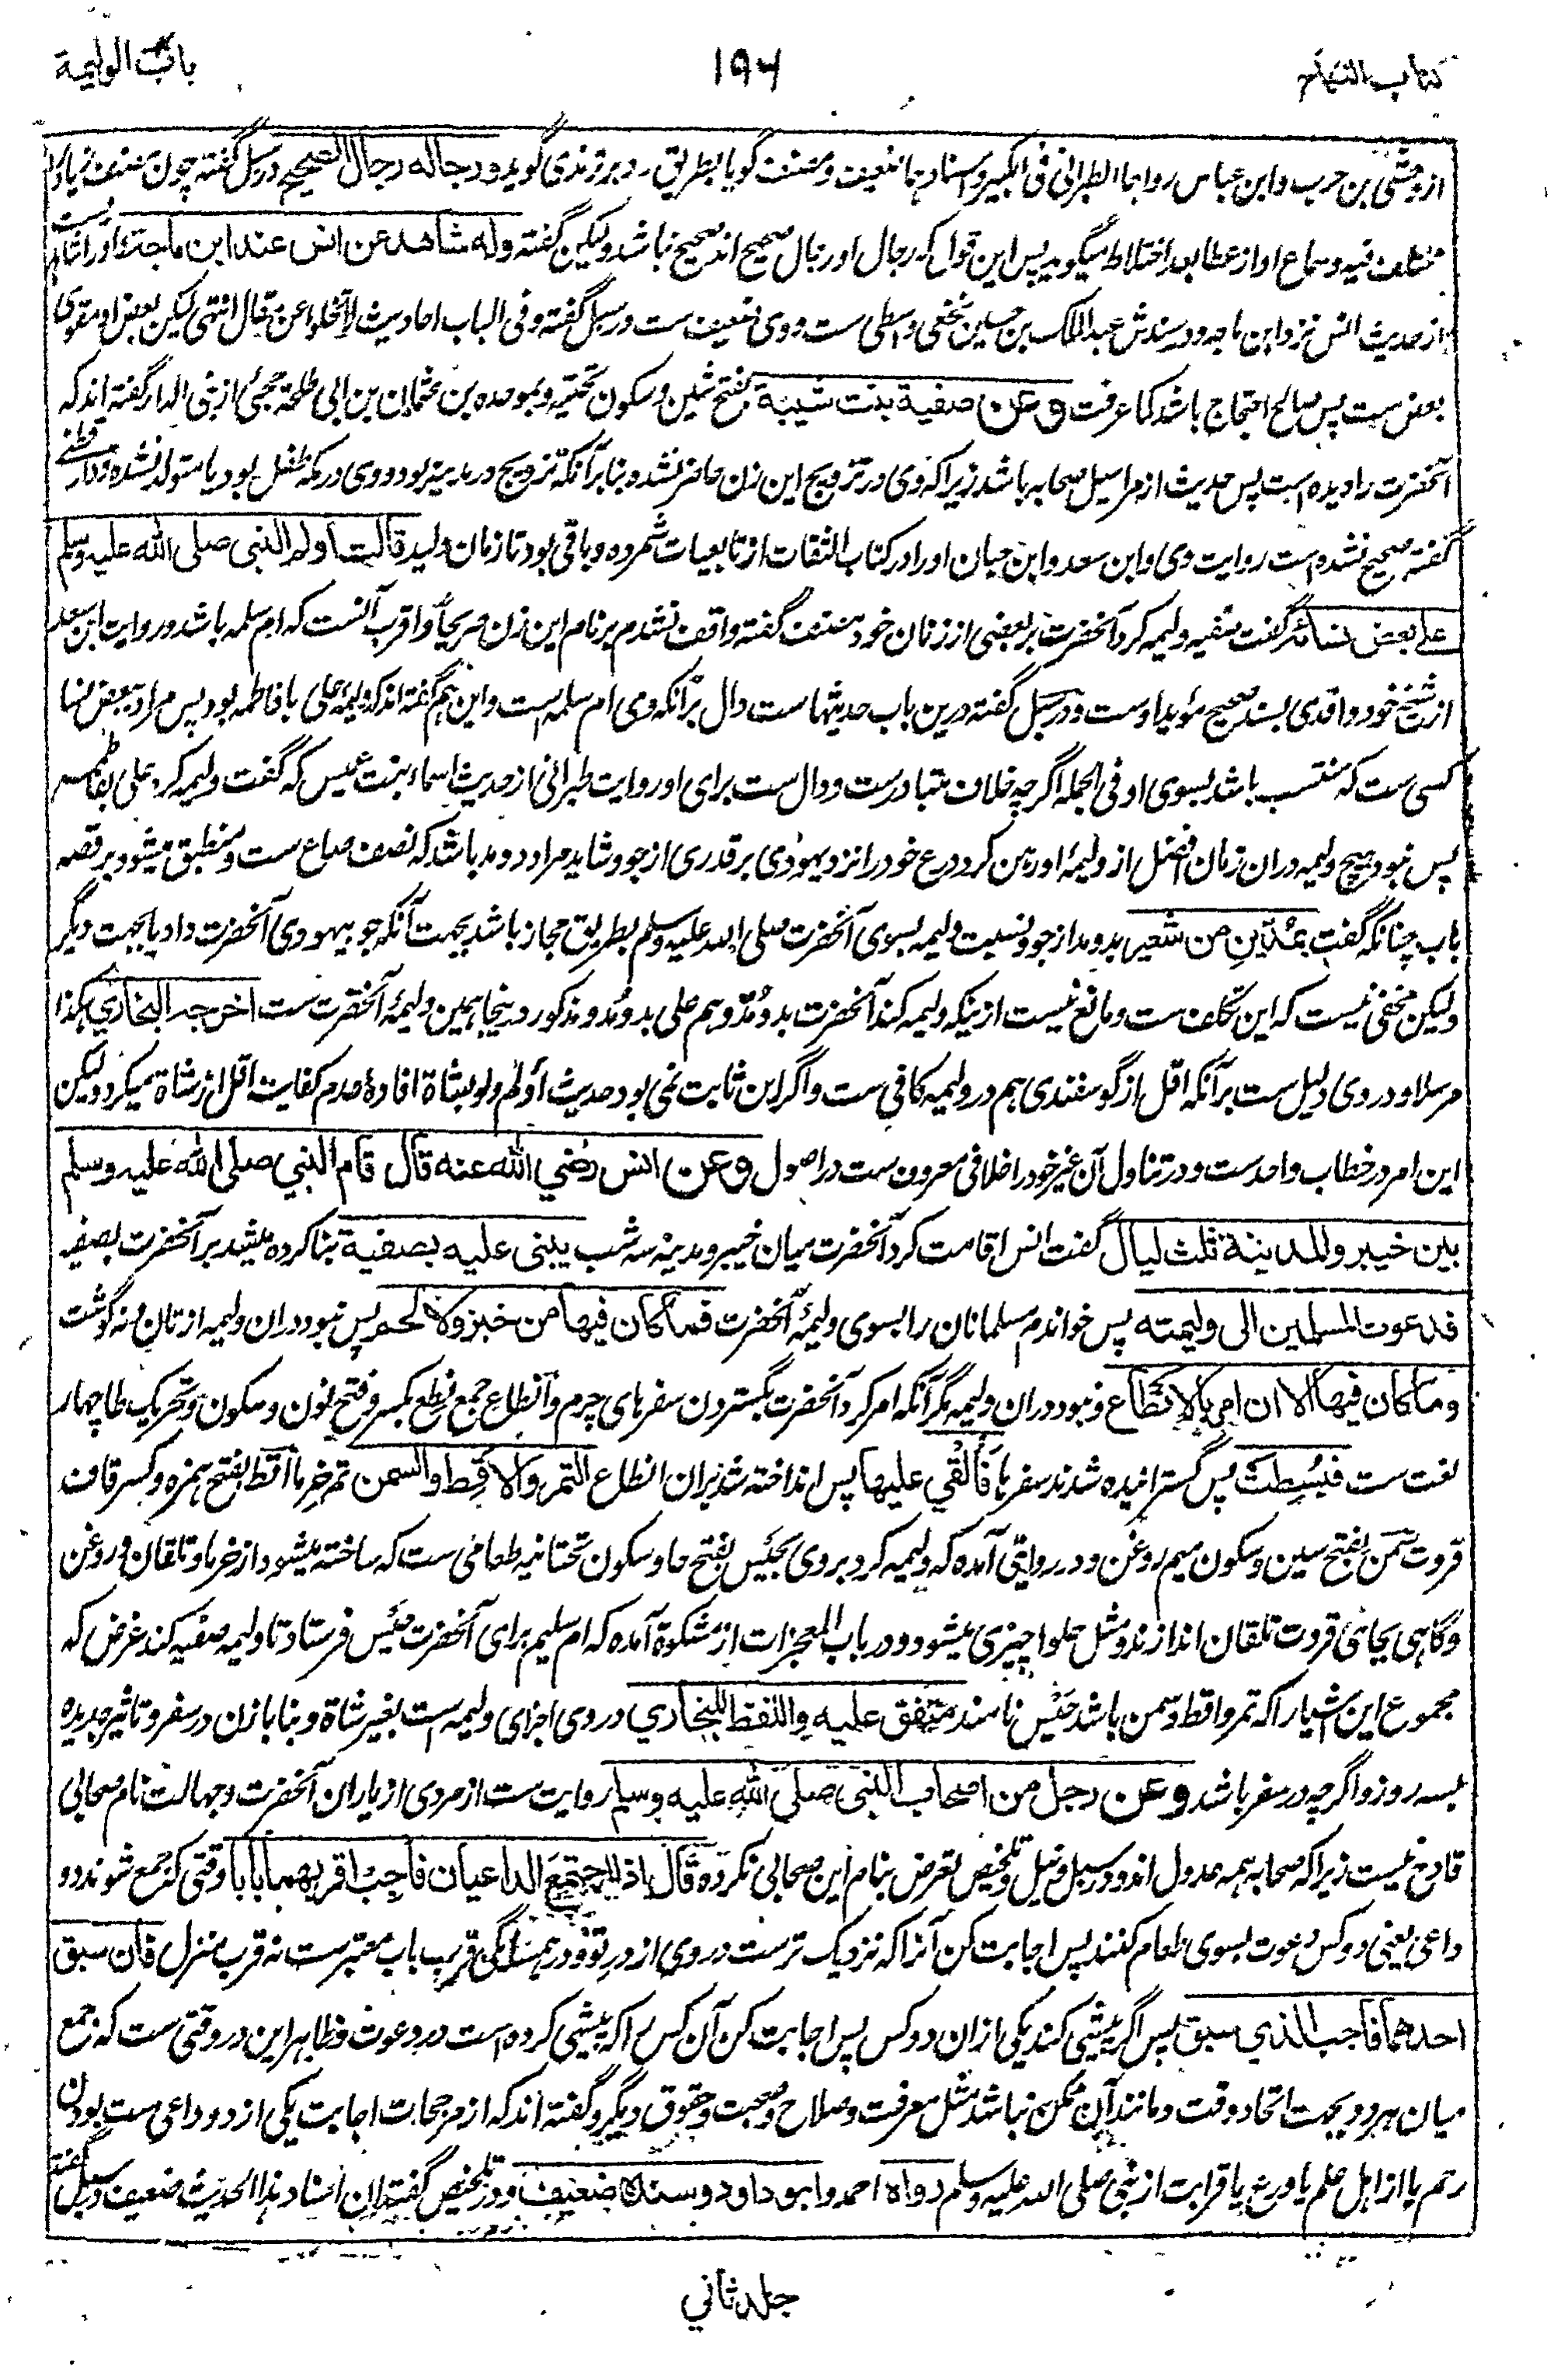 كتاب النكاح
١٩٦
باب الوليمة
از وحشی بن حرب وابن عباس رواهما الطبرانی فی الکبیر واسنادهما ضعیف ومصنف گویا بطریق رد بر ترمذی گوید ورجاله رجال الصحیح در سبل گفته چون مصنف زیاد را
مختلف فیه وسماع او از عطا بعد اختلاط میگوید پس این قول که رجال او رجال صحیح اند صحیح نباشد ولیکن گفته وله شاهد عن انس عند ابن ماجة واو را شاهد ست
از حدیث انس نزد ابن ماجه ودر سندش عبد الملک بن حسین نخعی واسطی ست ووی ضعیف ست ودر سبل گفته وفی الباب احادیث لا تخلوا عن مقال انتهی لیکن بعض او مقوی
بعض ست پس صالح احتجاج باشد کما عرفت وعن صفیة بنت شیبة بفتح شین وسکون تحتیه وبموحده بن عثمان بن ابی طلحه حجبی از بنی الدار گفته اند که
آنحضرت را دیده است پس حدیث از مراسیل صحابه باشد زیرا که وی در تزویج این زن حاضر نشده بنا بر آنکه تزویج در مدینه بود ووی در مکه طفل بود یا متولد نشده ودار قطنی
گفته صحیح نشده است روایت وی وابن سعد وابن حبان او را در کتاب الثقات از تابعیات شمرده وباقی بود تا زمان ولید قالت اولم النبی صلی الله علیه وسلم
علی بعض نسائه گفت صفیه ولیمه کرد آنحضرت بر بعضی از زنان خود مصنف گفته واقف نشدم بر نام این زن صریحاً واقرب آنست که ام سلمه باشد وروایت ابن سعد
از شیخ خود واقدی بسند صحیح مؤید اوست ودر سبل گفته درین باب حدیثها ست دال بر آنکه وی ام سلمه است واین هم گفته اند که ولیمه علی با فاطمه بود پس مراد ببعض نسا
کسی ست که منتسب باشد بسوی او فی الجمله اگرچه خلاف متبادر ست ودال ست برای او روایت طبرانی از حدیث اسماء بنت عمیس که گفت ولیمه کرد علی بفاطمه
پس نبود هیچ ولیمه دران زمان افضل از ولیمهٔ او رهن کرد درع خود را نزد یهودی بر قدری از جو وشاید مراد دو مد باشد که نصف صاع ست ومنطبق میشود بر قصه
باب چنانکه گفت بمدین من شعیر بدو مد از جو ونسبت ولیمه بسوی آنحضرت صلی الله علیه وسلم بطریق مجاز باشد بجهت آنکه جو بیهودی آنحضرت داد یا بجهت دیگر
ولیکن مخفی نیست که این تکلف ست ومانع نیست از نیکه ولیمه کند آنحضرت بدو مد وهم علی بدو مد ومذکور در ینجا همین ولیمهٔ آنحضرت ست اخرجه البخاری هکذا
مرسلا ودر وی دلیل ست بر آنکه اقل از گوسفندی هم در ولیمه کافی ست واگر این ثابت نمی بود حدیث اولم ولو بشاة افادهٔ عدم کفایت اقل از شاة میکرد ولیکن
این امر در خطاب واحد ست ودر تناول آن غیر خود را خلافی معروف ست در اصول وعن انس رضی الله عنه قال قام النبی صلی الله علیه وسلم
بین خیبر والمدینة ثلث لیال گفت انس اقامت کرد آنحضرت میان خیبر ومدینه سه شب یبنی علیه بصفیة بنا کرده میشد بر آنحضرت بصفیه
فدعوت المسلمین الی ولیمته پس خواندم مسلمانان را بسوی ولیمهٔ آنحضرت فما کان فیها من خبز ولا لحم پس نبود دران ولیمه از نان ونه گوشت
وما کان فیها الا ان امر بالانطاع ونبود دران ولیمه مگر آنکه امر کرد آنحضرت بگستردن سفرهای چرم وانطاع جمع نطع بکسر وفتح نون وسکون وتحریک طا چهار
لغت ست فبسطت پس گسترانیده شدند سفرها فألقی علیها پس انداخته شد بران انطاع التمر والاقط والسمن تمر خرما اقط بفتح همزه وکسر قاف
قروت سمن بفتح سین وسکون میم روغن ودر روایتی آمده که ولیمه کرد بروی بحیس بفتح حا وسکون تحتانیه طعامی ست که ساخته میشود از خرما وتلقان وروغن
وگاهی بجای قروت تلقان اندازند ومثل حلوا چیزی میشود ودر باب المعجزات از مشکوة آمده که ام سلیم برای آنحضرت حیس فرستاد تا ولیمه صفیه کند غرض که
مجموع این اشیا را که تمر واقط وسمن باشد حیس نامند متفق علیه واللفظ للبخاری در وی اجزای ولیمه است بغیر شاة وبنا با زن در سفر وتاثیر جدیده
بسه روز واگرچه در سفر باشد وعن رجل من اصحاب النبی صلی الله علیه وسلم روایت ست از مردی از یاران آنحضرت وجهالت نام صحابی
قادح نیست زیرا که صحابه همه عدول اند ودر سبل ونیل وتلخیص تعرض بنام این صحابی نکرده قال اذا اجتمع الداعیان فاجب اقربهما بابا وقتی که جمع شوند دو
داعی یعنی دو کس دعوت بسوی طعام کنند پس اجابت کن آنرا که نزدیک تر ست در وی از در تو ودر همسایگی قرب باب معتبر ست نه قرب منزل فان سبق
احدهما فاجب الذی سبق پس اگر پیشی کند یکی از ان دو کس پس اجابت کن آن کس را که پیشی کرده است در دعوت وظاهر این در وقتی ست که جمع
میان هر دو بجهت اتحاد وقت ومانند آن ممکن نباشد مثل معرفت وصلاح وصحبت وحقوق دیگر وگفته اند که از مرجحات اجابت یکی از دو داعی ست بودن
رحم یا از اهل علم یا ورع یا قرابت از نبی صلی الله علیه وسلم رواه احمد وابو داود وسنده ضعیف ودر تلخیص گفته ان اسناد هذا الحدیث ضعیف ودر سبل گفته
جلد ثاني